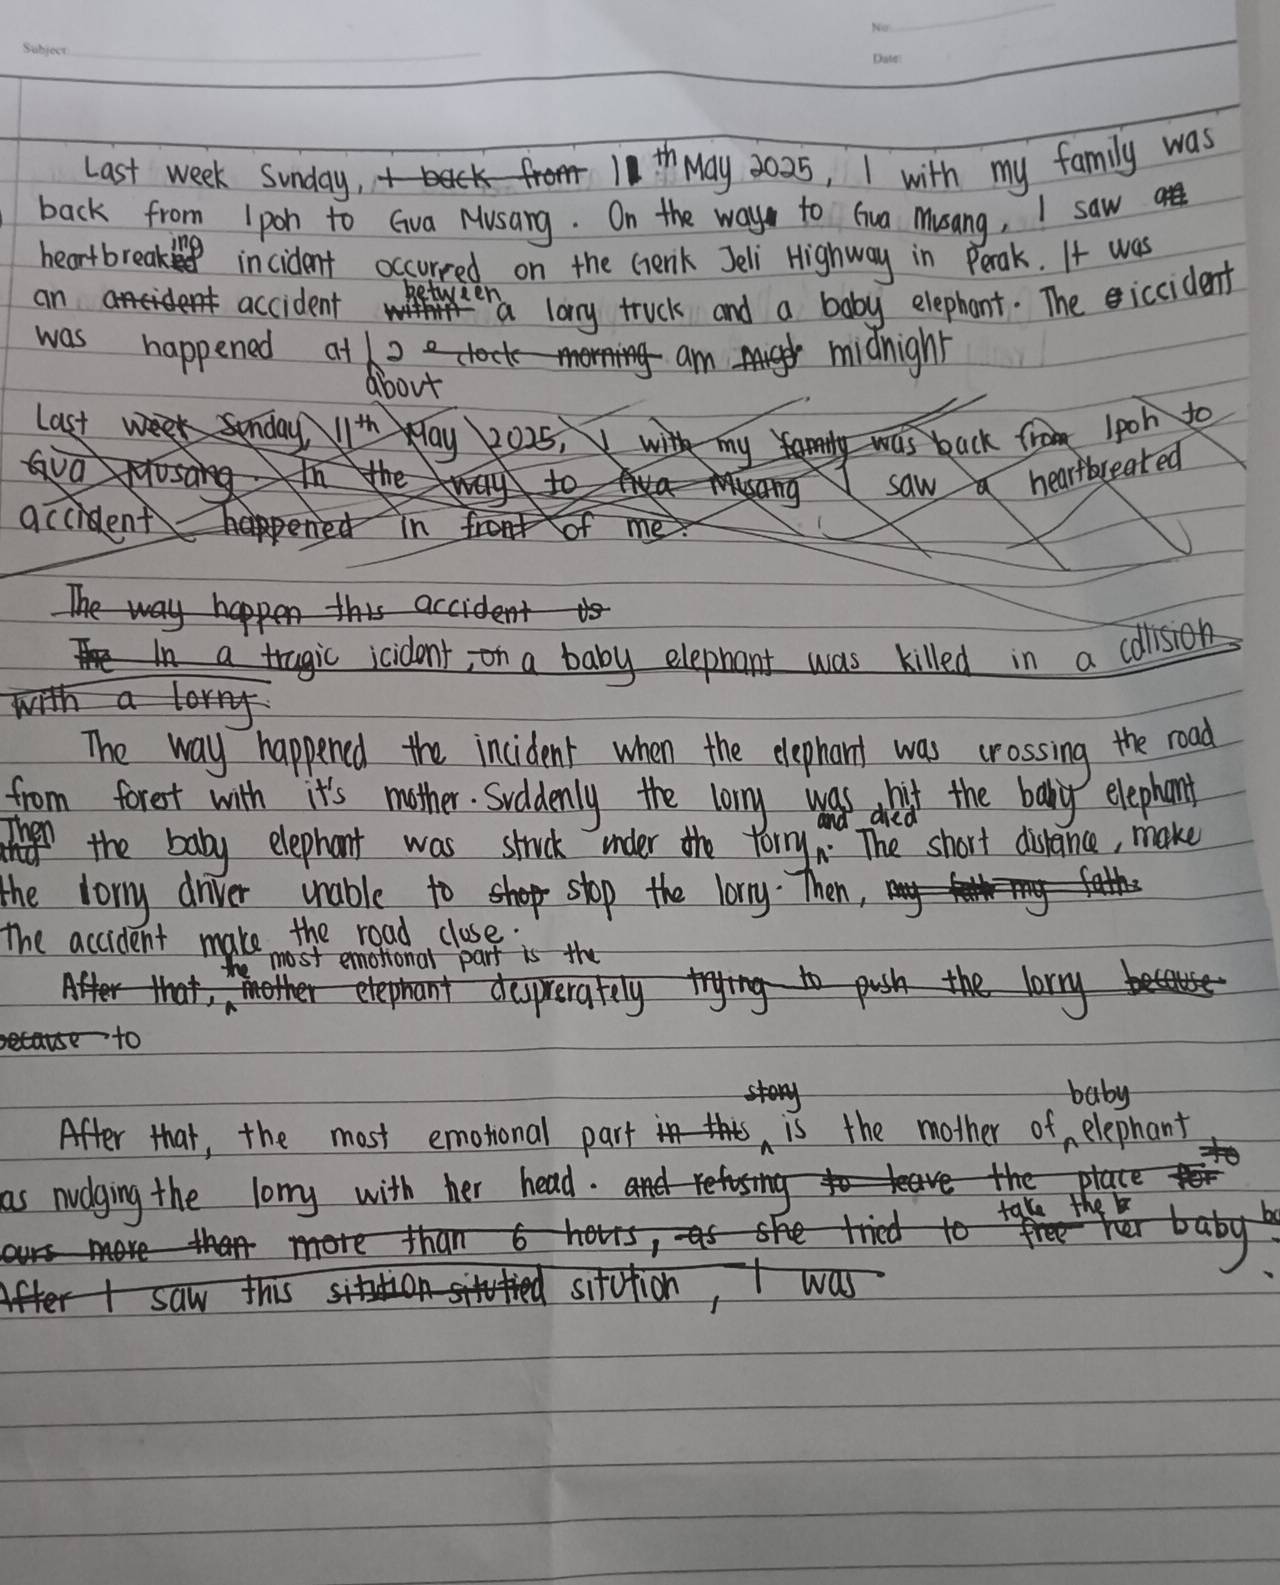 Subject
No:
Date:
Last week Sunday, I back from 11th May 2025, I with my family was
back from Ipoh to Gua Musang. On the way to Gua Musang, I saw
heartbreaking incident occurred on the Gerik Jeli Highway in Perak. It was
an ancident accident within between a lorry truck and a baby elephant. The iccident
was happened at about 12 o clock morning am midnight
Last week Sunday, 11th May 2025, I with my family was back from Ipoh to
Gua Musang. In the way to Gua Musang I saw a heartbreated
accident happened in front of me.
The way happen this accident is
The In a tragic icident, on a baby elephant was killed in a collision
with a lorry.
The way happened the incident when the elephant was crossing the road
from forest with it's mother. Suddenly the lorry was hit the baby elephant
and Then the baby elephant was struck under the lorry and died. The short distance, make
the lorry driver unable to shop stop the lorry. Then, my fath my fath
The accident make the road close.
the most emotional part is the
After that, mother elephant desprerately trying to push the lorry because
because to
After that, the most emotional part in this story is the mother of baby elephant
as nudging the lorry with her head. and refusing to leave the place for to
ours more than more than 6 hours, as she tried to free take the her baby
After I saw this sitution situtied sitution, I was